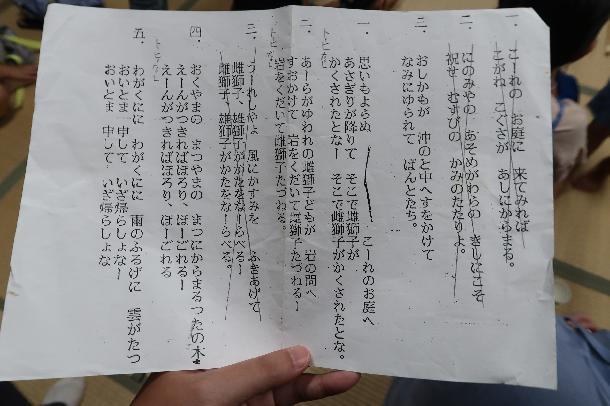 一．こーれの　お庭に　来てみれば
こがね　こぐさが　あしにからまる。
二．にのみやの　あそめがわらの　きしはこそ
祝せ　むすびの　かみのたたりよ。
三．おしかもが　沖のと中へすをかけて
なみにゆられて　ぱんとたち。
一．思いもよらぬ　こーれのお庭へ
あさぎりが降りて　そこで雌獅子が
かくされたとなー　そこで雌獅子がかくされたとな。
トヒ
二．あーらがゆわれの雌獅子どもが　岩の間へ
すおかけて　岩をくだいて雌獅子たづねるー
岩をくだいて雌獅子たづねる。
トヒ
三．うーれしやよ　風にかすみを　ふきあげて
雌獅子、雄獅子がかたをなーらべるー
雌獅子、雄獅子がかたをなーらべる。
四．おくやまの　まつやまの　まつにからまるつたの木も
えーんがつきればほろり、ほーごれるー
えーんがつきればほろり、ほーごれる
五．わがくにに　わがくにに　雨のふるげに　雲がたつ
おいとま　申して　いざ帰らしょなー
おいとま　申して　いざ帰らしょな